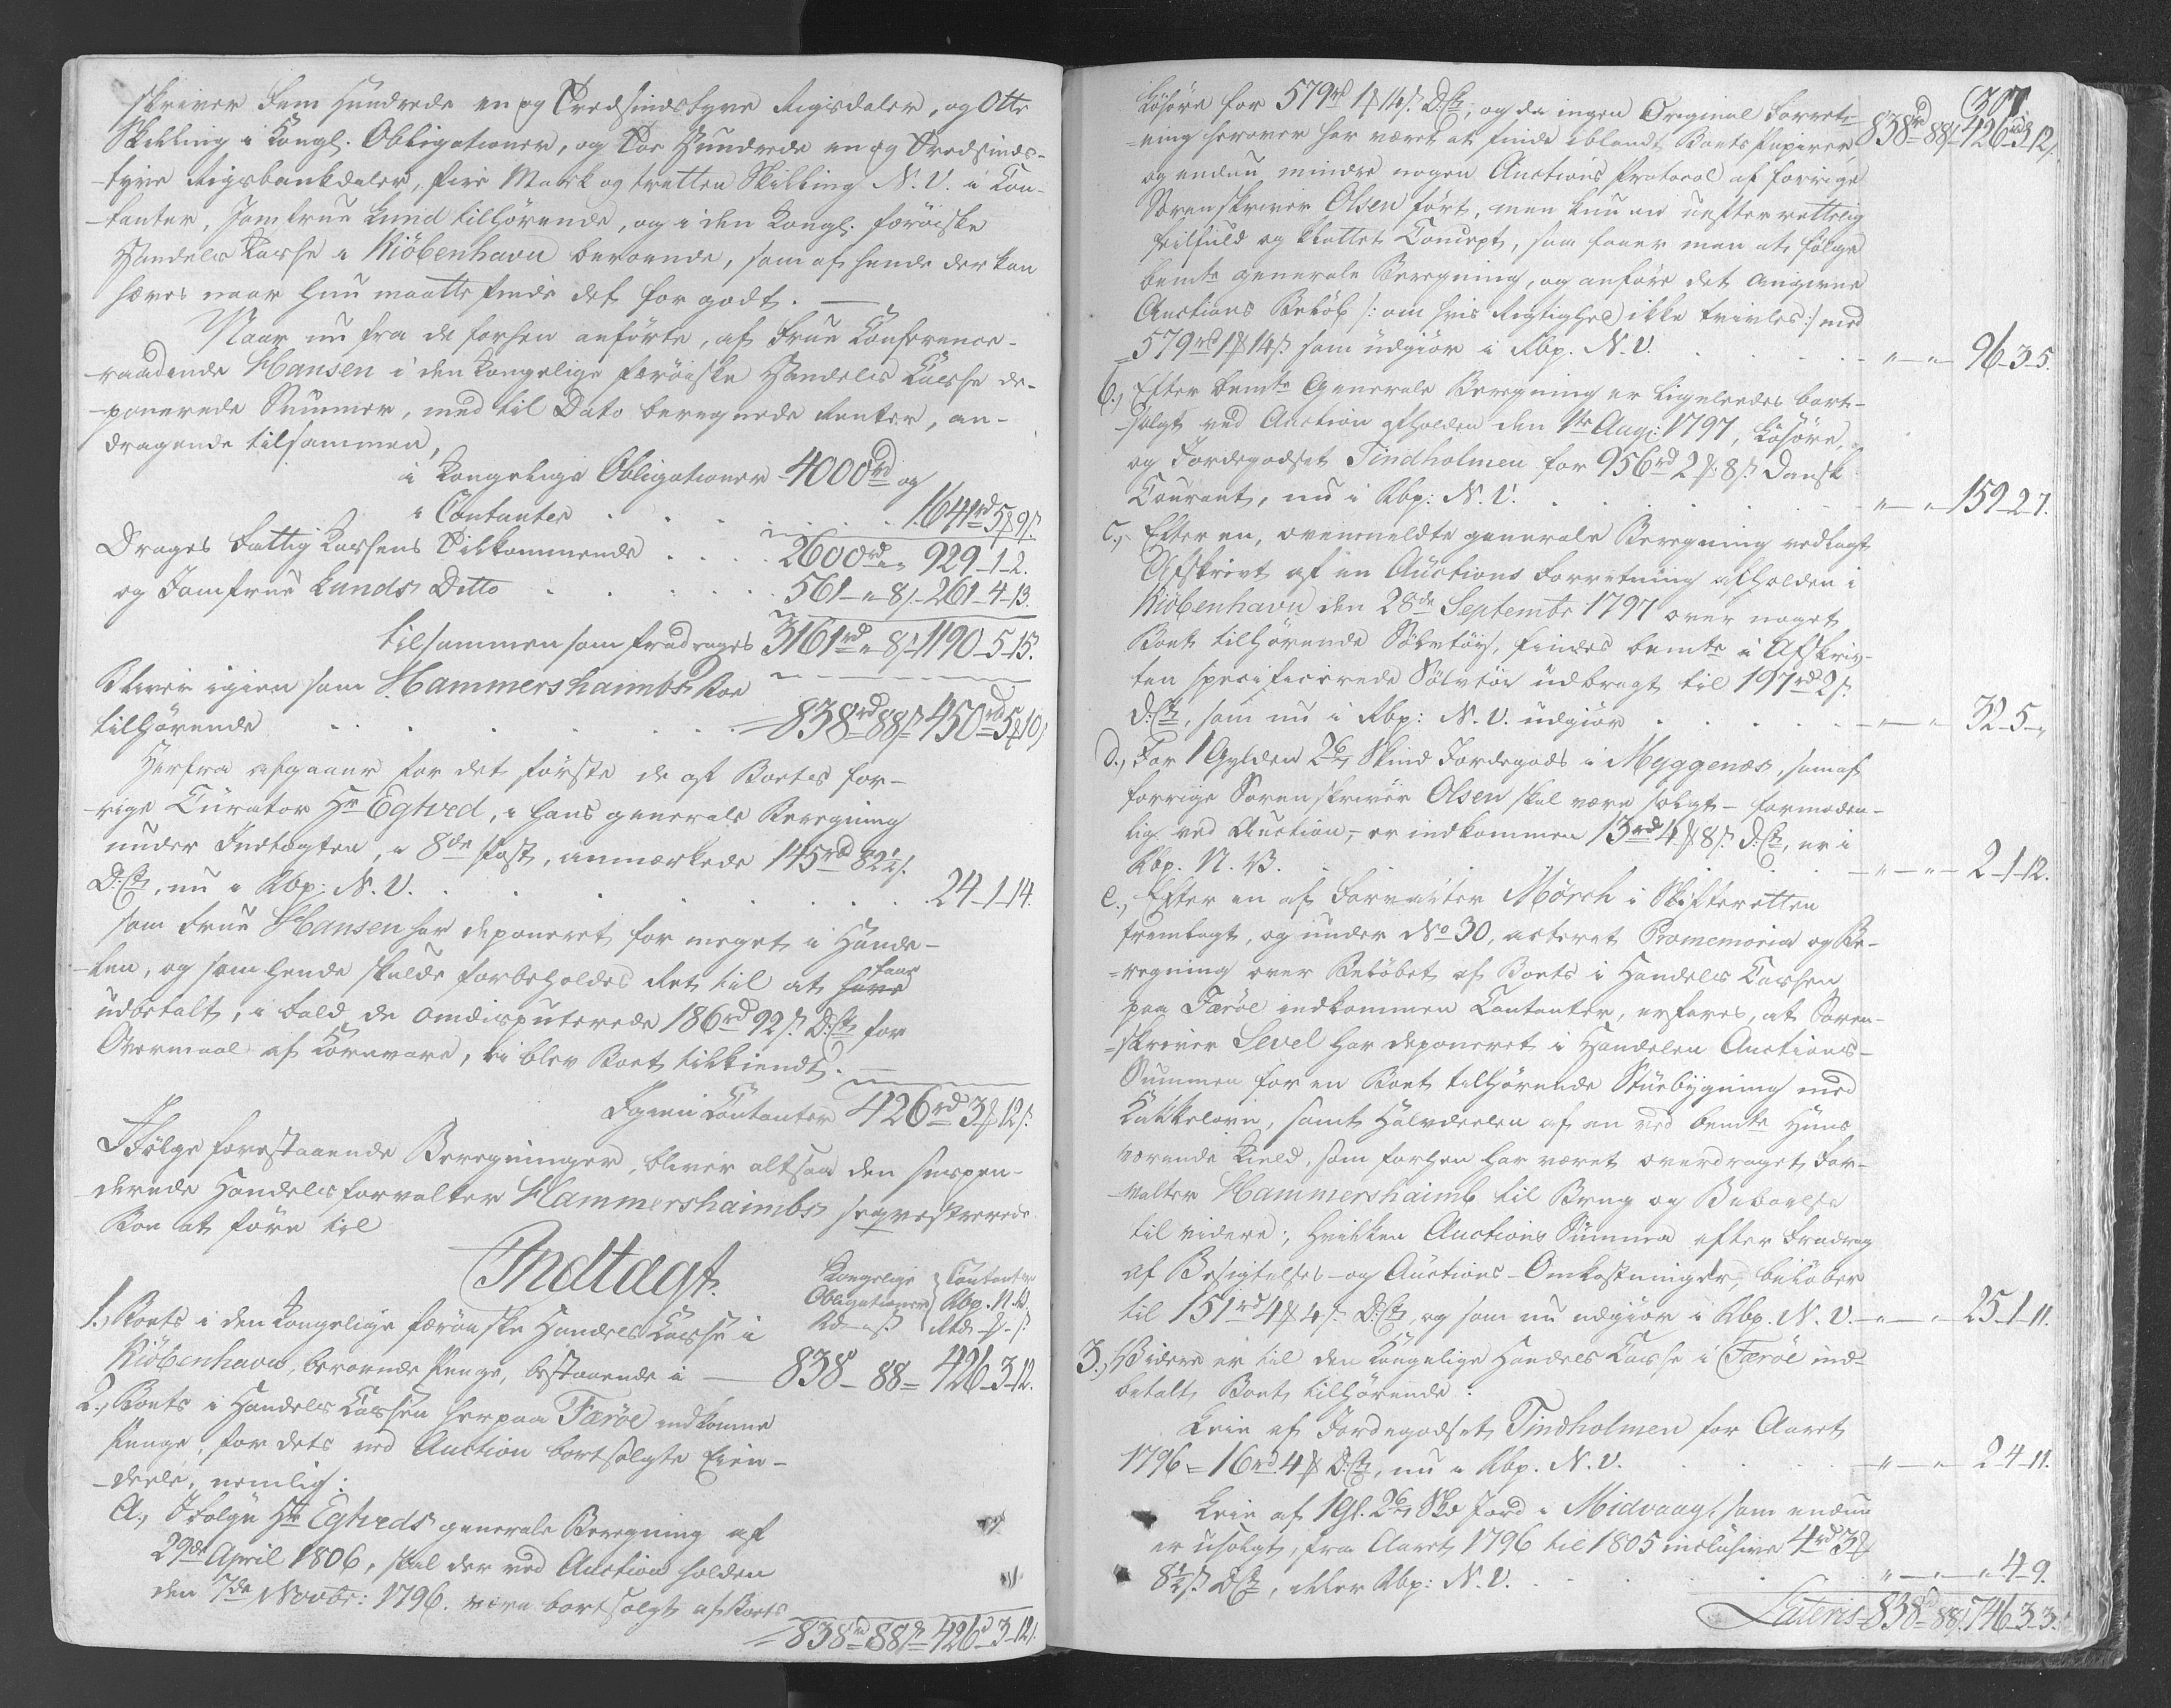 skriver Fem Hundrede en og Tredsindstyve Rigsdaler, og Otte
Skilling i Kongl. Obligationer, og Toe Hundrede en og Tredsinds-
-tyve Rigsbankdaler, fire Mark og tretten Skilling N. V. i Con-
-tanter, Jomfrue Lund tilhörende, og i den Kongl. færöiske
Handels Casse i Kiöbenhavn beroende, som af hende der kan
hæves naar hun maatte finde det for godt. —
Naar nu fra de forhen anförte, af Frue Conference-
-raadinde Hansen i den Kongelige færöiske Handels Casse de-
-ponerede Summer, med til Dato beregnede Renter, an-
dragende tilsammen,
i Kongelige Obligationer 4000 rd og
i Contanter . . . . 1641 rd 5 ꟙ 9 s.
Drages Fattig Cassens Tilkommende . . . 2600 rd „ „ 929-1-2.
og Jomfrue Lunds Ditto . . . . . 561-„-8 s.-261-4-13.
tilsammen som fradrages 3161 rd „ 8 s. 1190-5-15.
Bliver igien som Hammershaimbs Boe
tilhörende . . . . . . 838 rd 88 s. 450 rd 5 ꟙ 10 s.
Herfra afgaaer for det förste de af Boets for-
-rige Curator Hr Egtved, i hans generale Beregning
under Indtægten, i 8de Post, anmærkede 145 rd 82½ s.
D: Ct, nu i Rbp: N. V. . . . . . . 24-1-14.
som Frue Hansen har deponeret for meget i Hande-
-len, og som hende skulde forbeholdes Ret til at have faae
udbetalt, i fald de omdisputerede 186 rd 92 s. D: Ct for
Overmaal af Kornvare, ei blev Boet tilkiendt. —
Igien Contanter 426 rd 3 ꟙ 12 s.
Ifölge forestaaende Beregninger, bliver altsaa den suspen-
derede Handelsforvalter Hammershaimbs seqvestrerede
Boe at före til
Indtægt.
Kongelige Obligationer Rd - s. Contanter Rbp. N. V. Rbd. ꟙ - s.
1., Boets i den Kongelige færöiske Handels Casse i
Kiöbenhavn, beroende Penge, bestaaende i — 838-88= 426-3-12.
2., Boets i Handels Cassen her paa Færöe indkomne
Penge, for dets ved Auction bortsolgte Eien-
-deele, nemlig:
a., Ifölge Hr Egtveds generale Beregning af
29de April 1806, skal der ved Auction holden
den 7de Novbr: 1796. være bortsolgt af Boets
838 rd 88 s. 426 rd 3-12 s.
307
Lösöre for 579 rd 1 ꟙ 14 s. D: Ct; og da ingen Original Forret-
-ning herover har været at finde iblandt Boets Papirer, 838 rd 88 s. 426 rd 3-12 s.
og endnu mindre nogen Auctions Protocol af forrige
Sorenskriver Olsen fört, men kun en uefterrettelig
feilfuld og klattet Concept, saa faaer man at fölge
bemte generale Beregning, og anföre det angivne
Auctions Belöb /: om hvis Rigtighed ikke tvivles :/ med
579 rd 1 ꟙ 14 s. som udgiör i Rbp. N. V. . . . . „ — „ 96-3-5.
b., Efter bemte Generale Beregning er ligeleedes bort-
-solgt ved Auction afholden den 1te Aug: 1797, Lösöre,
og Jordegodset Tindholmen for 956 rd 2 ꟙ 8 s. Dansk
Courant, nu i Rbp: N. V. . . . . „ — „ 159-2-7.
c., Efter en, ovenmeldte generale Beregning vedlagt
Afskrivt af en Auctions Forretning afholden i
Kiöbenhavn den 28de Septembr 1797 over noget
Boet tilhörende Sölvtöi, findes bemte i Afskriv-
ten specificerede Sölvtöi udbragt til 197 rd 2 s.
D: Ct, som nu i Rbp: N. V. udgiör . . . . „ — „ 32-5-„
d., For 1 Gylden 2 6/7 Skind Jordegods i Myggenæs, som af
forrige Sorenskriver Olsen skal være solgt - formoden-
lig ved Auction, - er indkommen 13 rd 4 ꟙ 8 s. D: Ct, er i
Rbp. N. V. . . . . „ — „ 2-1-12.
e., Efter en af Forvalter Mörch i Skifteretten
fremlagt, og under No 30, acteret Promemoria og Be-
-regning over Belöbet af Boets i Handels Cassen
paa Færöe indkommen Contanter, erfares, at Soren-
-skriver Level har deponeret i Handelen Auctions-
Summen for en Boet tilhörende Stuebygning med
Kakkelovn, samt Halvdeelen af en ved bemte Huus
værende Kield, som forhen har været overdraget For-
-valter Hammershaimb til Brug og Beboelse
til videre; hvilken Auctions Summa efter Fradrag
af Besigtelses- og Auctions-Omkostninger, belöber
til 151 rd 4 ꟙ 4 s. D: Ct, og som nu udgiör i Rbp. N. V. „ — „ 25-1-11.
3., Videre er til den Kongelige Handels Casse i Færöe ind-
betalt Boet tilhörende:
Leie af Jordegodset Tindholmen for Aaret
1796 = 16 rd 4 ꟙ D: Ct, nu i Rbp. N. V. . . . „ — „ 2-4-11.
Leie af 1 Gl. 2 6/7 Skd Jord i Midvaag, som endnu
er usolgt, fra Aaret 1796 til 1805 inclusive 4 rd 3 ꟙ
8½ s. D: Ct, eller Rbp: N. V. . . . . „ — „ „ 4-9.
Lateris 838 rd 88 s. 746-3-3.